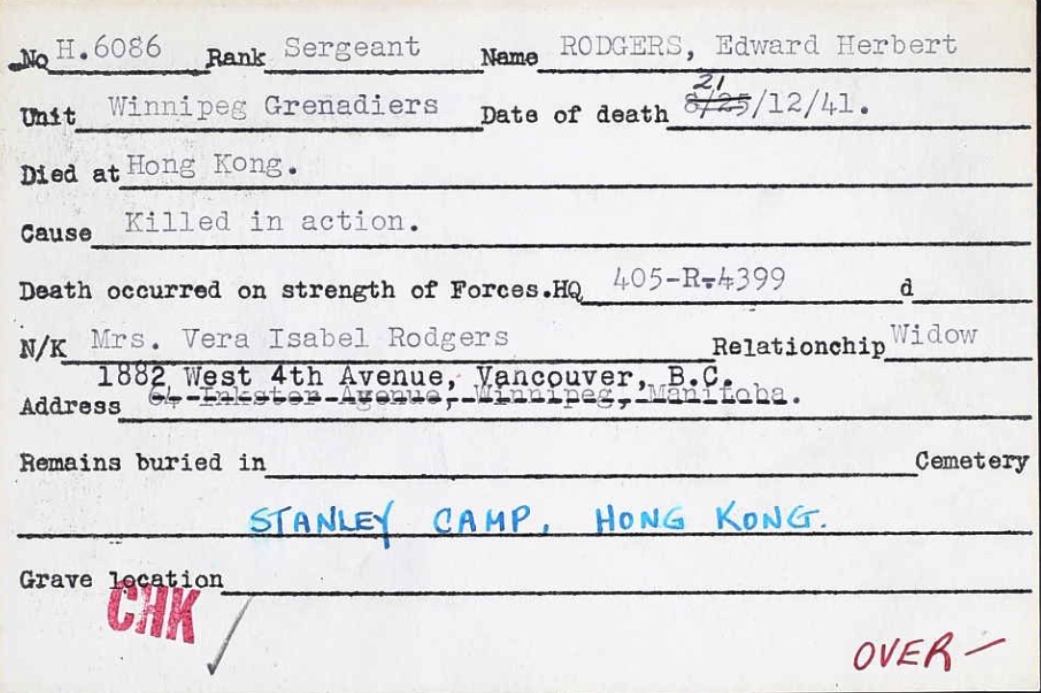 No H.6086 Rank Sergeant Name RODGERS, Edward Herbert
21
Unit Winnipeg Grenadiers Date of death 8/25/12/41.
Died at Hong Kong.
Cause Killed in action.
Death occurred on strength of Forces.HQ 405-R-4399 d
N/K Mrs. Vera Isabel Rodgers Relationchip Widow
1882 West 4th Avenue, Vancouver, B.C.
Address 64 Inkster Avenue, Winnipeg, Manitoba.
Remains buried in Cemetery
STANLEY CAMP, HONG KONG.
Grave location
CHK
OVER —